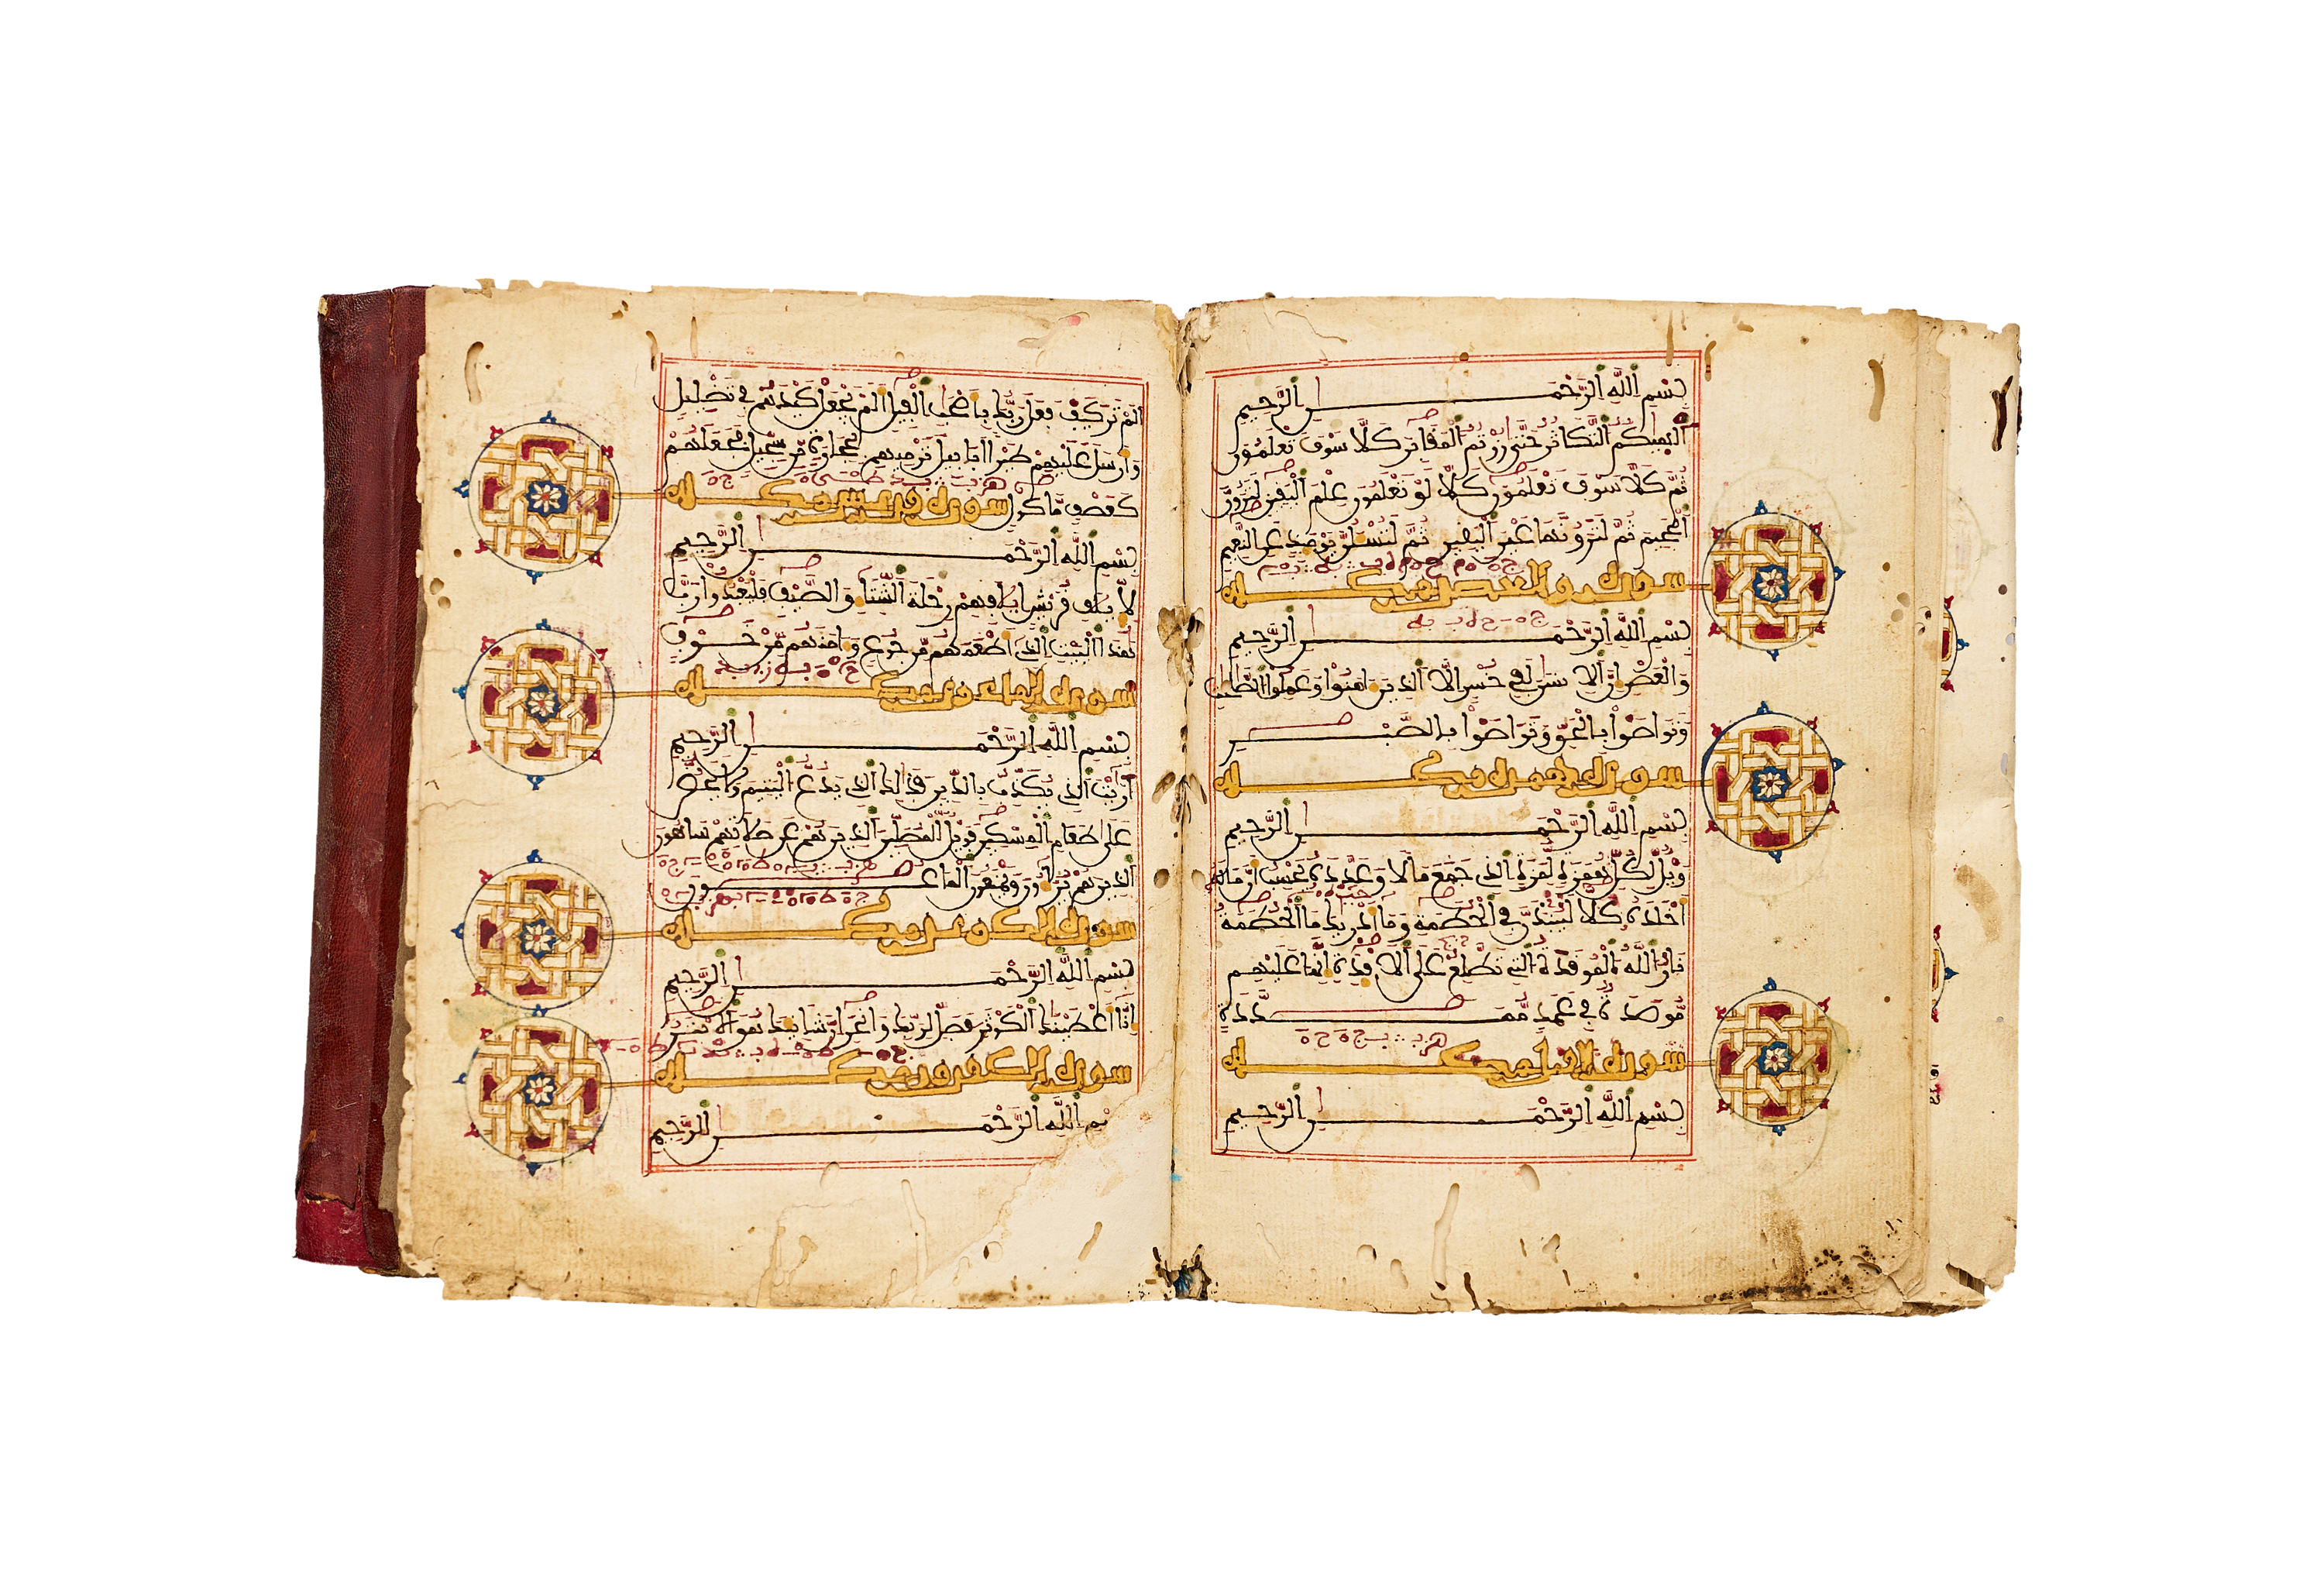 بِسْمِ اللَّهِ الرَّحْمَٰنِ الرَّحِيمِ
أَلْهَيٰكُمُ التَّكَاثُرُ حَتَّىٰ زُرْتُمُ الْمَقَابِرَ كَلَّا سَوْفَ تَعْلَمُونَ
ثُمَّ كَلَّا سَوْفَ تَعْلَمُونَ كَلَّا لَوْ تَعْلَمُونَ عِلْمَ الْيَقِينِ لَتَرَوُنَّ
الْجَحِيمَ ثُمَّ لَتَرَوُنَّهَا عَيْنَ الْيَقِينِ ثُمَّ لَتُسْـَٔلُنَّ يَوْمَئِذٍ عَنِ النَّعِيمِ
سورة والعصر مكية
بِسْمِ اللَّهِ الرَّحْمَٰنِ الرَّحِيمِ
وَالْعَصْرِ إِنَّ الْإِنسَٰنَ لَفِي خُسْرٍ إِلَّا الَّذِينَ ءَامَنُوا وَعَمِلُوا الصَّٰلِحَٰتِ
وَتَوَاصَوْا بِالْحَقِّ وَتَوَاصَوْا بِالصَّبْرِ
سورة الهمزة مكية
بِسْمِ اللَّهِ الرَّحْمَٰنِ الرَّحِيمِ
وَيْلٌ لِّكُلِّ هُمَزَةٍ لُّمَزَةٍ الَّذِي جَمَعَ مَالًا وَعَدَّدَهُ يَحْسِبُ أَنَّ مَالَهُ
أَخْلَدَهُ كَلَّا لَيُنبَذَنَّ فِي الْحُطَمَةِ وَمَا أَدْرَيٰكَ مَا الْحُطَمَةُ
نَارُ اللَّهِ الْمُوقَدَةُ الَّتِي تَطَّلِعُ عَلَى الْأَفْـِٔدَةِ إِنَّهَا عَلَيْهِم
مُّوصَدَةٌ فِي عَمَدٍ مُّمَدَّدَةٍ
سورة الفيل مكية
بِسْمِ اللَّهِ الرَّحْمَٰنِ الرَّحِيمِ
أَلَمْ تَرَ كَيْفَ فَعَلَ رَبُّكَ بِأَصْحَٰبِ الْفِيلِ أَلَمْ يَجْعَلْ كَيْدَهُمْ فِي تَضْلِيلٍ
وَأَرْسَلَ عَلَيْهِمْ طَيْرًا أَبَابِيلَ تَرْمِيهِم بِحِجَارَةٍ مِّن سِجِّيلٍ فَجَعَلَهُمْ
كَعَصْفٍ مَّأْكُولٍ سورة قريش مكية
بِسْمِ اللَّهِ الرَّحْمَٰنِ الرَّحِيمِ
لِإِيلَٰفِ قُرَيْشٍ إِۦلَٰفِهِمْ رِحْلَةَ الشِّتَاءِ وَالصَّيْفِ فَلْيَعْبُدُوا رَبَّ
هَٰذَا الْبَيْتِ الَّذِي أَطْعَمَهُم مِّن جُوعٍ وَءَامَنَهُم مِّنْ خَوْفٍ
سورة الماعون مكية
بِسْمِ اللَّهِ الرَّحْمَٰنِ الرَّحِيمِ
أَرَٰيْتَ الَّذِي يُكَذِّبُ بِالدِّينِ فَذَٰلِكَ الَّذِي يَدُعُّ الْيَتِيمَ وَلَا يَحُضُّ
عَلَىٰ طَعَامِ الْمِسْكِينِ فَوَيْلٌ لِّلْمُصَلِّينَ الَّذِينَ هُمْ عَن صَلَاتِهِمْ سَاهُونَ
الَّذِينَ هُمْ يُرَاءُونَ وَيَمْنَعُونَ الْمَاعُونَ
سورة الكوثر مكية
بِسْمِ اللَّهِ الرَّحْمَٰنِ الرَّحِيمِ
إِنَّا أَعْطَيْنَٰكَ الْكَوْثَرَ فَصَلِّ لِرَبِّكَ وَانْحَرْ إِنَّ شَانِئَكَ هُوَ الْأَبْتَرُ
سورة الكفرون مكية
بِسْمِ اللَّهِ الرَّحْمَٰنِ الرَّحِيمِ